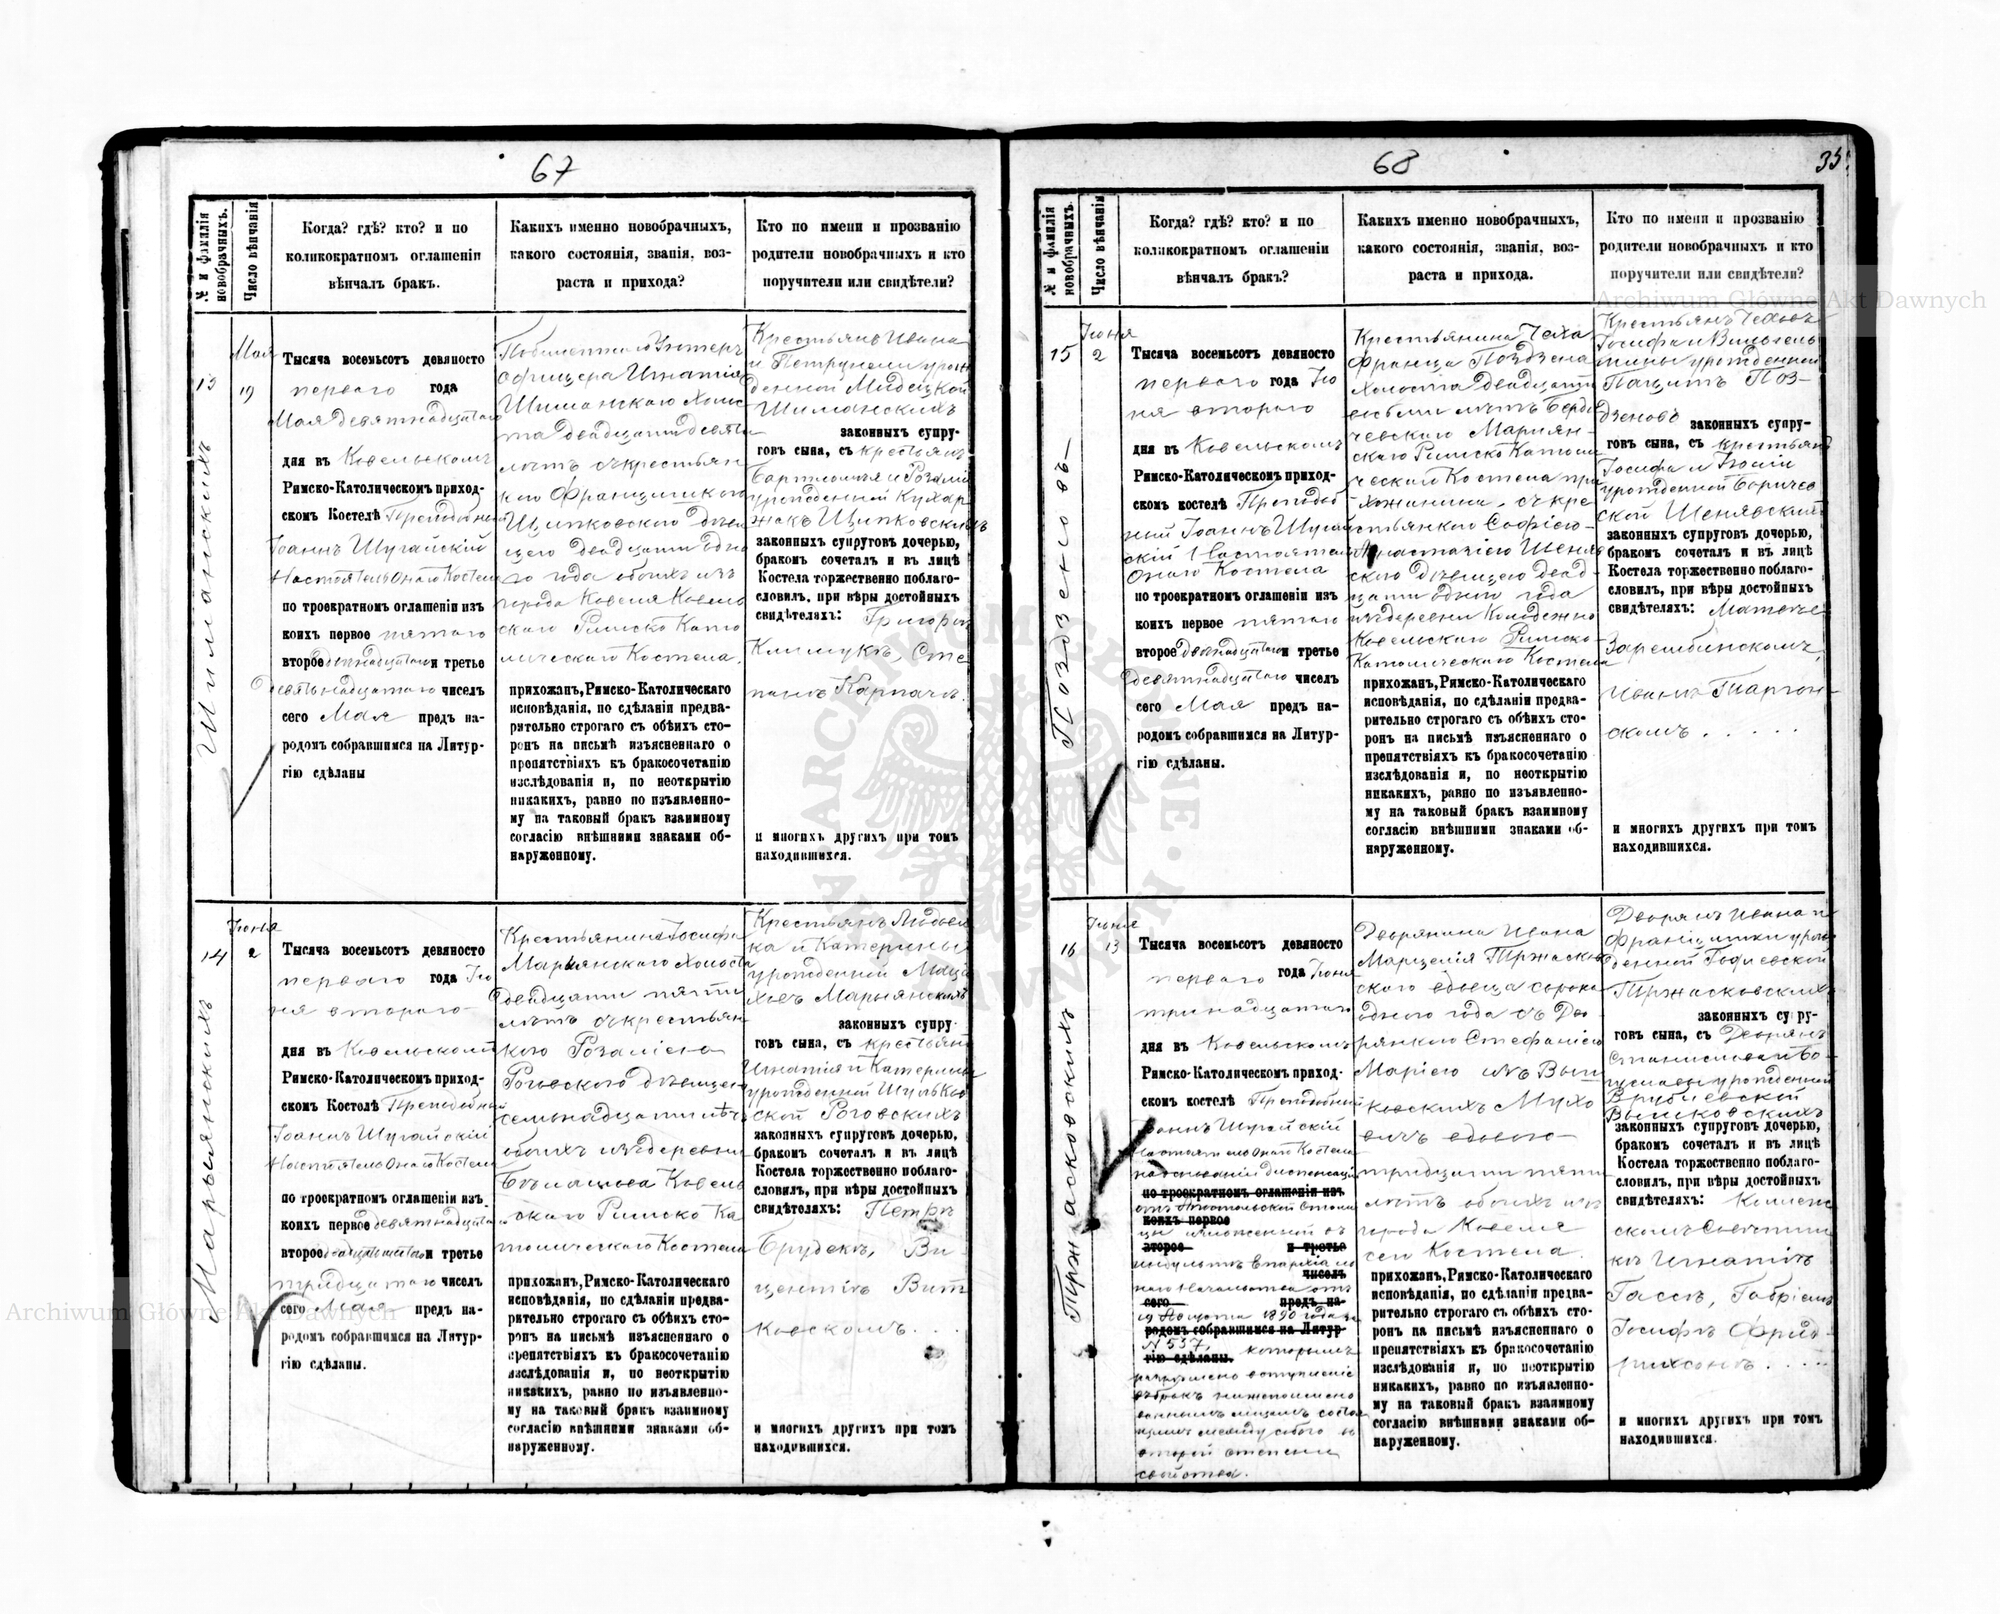 67
№ и фамилія новобрачныхъ.
Число вѣнчанія
Когда? гдѣ? кто? и по
коликократномъ оглашеніи
вѣнчалъ бракъ.
Какихъ именно новобрачныхъ,
какого состоянія, званія, воз-
раста и прихода?
Кто по имени и прозванію
родители новобрачныхъ и кто
поручители или свидѣтели?
Шиманскихъ
Мая
19
Тысяча восемьсотъ девяносто
перваго года
Мая девятнадцатаго
дня въ Ковельскомъ
Римско-Католическомъ приход-
скомъ Костелѣ Преподобный
Іоаннъ Шугайскій
Настоятель Онаго Костела
по троекратномъ оглашеніи изъ
коихъ первое пятаго
второе двѣнадцатаго и третье
девятнадцатаго чиселъ
сего Мая предъ на-
родомъ собравшимся на Литур-
гію сдѣланы
Офицера Игнатія
Шиманскаго Холос-
та двадцати девяти
лѣтъ съ крестьян-
кою Францишкою
Щипковскою дѣви-
цею двадцати одно-
го года обоихъ изъ
города Ковеля Ковель
скаго Римско Като
лическаго Костела.
прихожан, Римско-Католическаго
исповѣданія, по сдѣланіи предва-
рительно строгаго съ обѣихъ сто-
ронъ на письмѣ изъясненнаго о
препятствіяхъ къ бракосочетанію
изслѣдованія и, по неоткрытію
никакихъ, равно по изъявленно-
му на таковый бракъ взаимному
согласію внѣшними знаками об-
наруженному.
Крестьянъ Ивана
и Петрунели урож
денной Мидецкой
Шиманскихъ
законныхъ супру-
говъ сына, съ крестьян
урожденной Кухар
жакъ Щипковскихъ
законныхъ супруговъ дочерью,
бракомъ сочеталъ и въ лицѣ
Костела торжественно поблаго-
словилъ, при вѣры достойныхъ
свидѣтеляхъ: Григоріи
Климукъ, Сте
панъ Карпачъ.
и многихъ другихъ при томъ
находившихся.
14
Марьянскихъ
Іюня
2
Тысяча восемьсотъ девяносто
перваго года Ію
ня втораго
дня въ Ковельскомъ
Римско-Католическомъ приход-
скомъ Костелѣ Преподобный
Іоаннъ Шугайскій
Настоятель Онаго Костела
по троекратномъ оглашеніи изъ
коихъ первое девятнадцата
второе и третье
тридцатаго чиселъ
сего Мая предъ на-
родомъ собравшимся на Литур-
гію сдѣланы.
Крестьянина Іосифа
Марьянскаго Холоста
двадцати пяти
лѣтъ съ крестьян
кою Розаліею
Роговскою дѣвицею
семьнадцати лѣтъ
обоихъ изъ деревни
Ковель
скаго Римско Ка
толическаго Костела
прихожан, Римско-Католическаго
исповѣданія, по сдѣланіи предва-
рительно строгаго съ обѣихъ сто-
ронъ на письмѣ изъясненнаго о
препятствіяхъ къ бракосочетанію
изслѣдованія и, по неоткрытію
никакихъ, равно по изъявленно-
му на таковый бракъ взаимному
согласію внѣшними знаками об-
наруженному.
Крестьянъ Людови
ка и Катерины
урожденной
Марьянскихъ
законныхъ супру-
говъ сына, съ крестьян
Игнатія и Катерины
урожденной Шульков
ской Роговскихъ
законныхъ супруговъ дочерью,
бракомъ сочеталъ и въ лицѣ
Костела торжественно поблаго-
словилъ, при вѣры достойныхъ
свидѣтеляхъ: Петръ
Брудекъ, Ви-
центій Вит
ковскомъ . . .
и многихъ другихъ при томъ
находившихся.
68
35
№ и фамилія новобрачныхъ.
Число вѣнчанія
Когда? гдѣ? кто? и по
коликократномъ оглашеніи
вѣнчалъ бракъ?
Какихъ именно новобрачныхъ,
какого состоянія, званія, воз-
раста и прихода.
Кто по имени и прозванію
родители новобрачныхъ и кто
поручители или свидѣтели?
15
Поздзеновъ
Іюня
2
Тысяча восемьсотъ девяносто
перваго года Ію
ня втораго
дня въ Ковельскомъ
Римско-Католическомъ приход-
скомъ костелѣ Преподоб
ный Іоаннъ Шугай
скій Настоятель
Онаго Костела
по троекратномъ оглашеніи изъ
коихъ первое пятаго
второе двѣнадцатаго и третье
девятнадцатаго чиселъ
сего Мая предъ на-
родомъ собравшимся на Литур-
гію сдѣланы.
Крестьянина Чеха
Франца Поздзена
Холоста двадцати
восьми лѣтъ Берди
чевскаго Маріян-
скаго Римско Католи
ческаго Костела при
хожанина, съ кре
стьянкою Софіею
Анастасіею Шеняв
скою дѣвицею двад
цати одного года
изъ деревни Колодежно
Ковельскаго Римско-
Католическаго Костела
прихожан, Римско-Католическаго
исповѣданія, по сдѣланіи предва-
рительно строгаго съ обѣихъ сто-
ронъ на письмѣ изъясненнаго о
препятствіяхъ къ бракосочетанію
изслѣдованія и, по неоткрытію
никакихъ, равно по изъявленно-
му на таковый бракъ взаимному
согласію внѣшними знаками об-
наруженному.
Крестьянъ Чеховъ
Іосифа и
урожденной
Поз-
дзеновъ законныхъ супру-
говъ сына, съ крестьянъ
Іосифа и
урожденной
Шенявскихъ
законныхъ супруговъ дочерью,
бракомъ сочеталъ и въ лицѣ
Костела торжественно поблаго-
словилъ, при вѣры достойныхъ
свидѣтеляхъ: Матвѣе
Зарембинскомъ,
Иванъ Таргон-
скомъ . . . . .
и многихъ другихъ при томъ
находившихся.
16
Тржасковскихъ
Іюня
13
Тысяча восемьсотъ девяносто
перваго года Іюня
тринадцатаго
дня въ Ковельскомъ
Римско-Католическомъ приход-
скомъ костелѣ Преподобный
Іоаннъ Шугайскій
Настоятель Онаго Костела
на основаніи диспенсаціи
по троекратномъ оглашеніи изъ
отъ Апостольской Столи
коихъ первое
цы изложенной въ
второе и третье
индультѣ Епархіаль
чиселъ
наго Начальства отъ
сего предъ на-
19 Августа 1890 года за
родомъ собравшимся на Литур-
N 537, которымъ
гію сдѣланы.
разрѣшено вступленіе
въ бракъ нижепоимено
ваннымъ лицамъ состоя
щимъ между собою въ
второй степени
свойства.
Дворянина Ивана
Марцелія Тржасков
скаго вдовца сорока
одного года съ Дво
рянкою Стефаніею
Маріею изъ Выш
ковскихъ Мухо
вичъ вдовою
тридцати пяти
лѣтъ обоихъ изъ
города Ковеля
сего Костела.
прихожан, Римско-Католическаго
исповѣданія, по сдѣланіи предва-
рительно строгаго съ обѣихъ сто-
ронъ на письмѣ изъясненнаго о
препятствіяхъ къ бракосочетанію
изслѣдованія и, по неоткрытію
никакихъ, равно по изъявленно-
му на таковый бракъ взаимному
согласію внѣшними знаками об-
наруженному.
Дворянъ Ивана и
Францишки урож
денной
Тржасковскихъ
законныхъ супру-
говъ сына, съ Дворянъ
Станислава и Бо-
гуславы урожденной
Врублевской
Вышковскихъ
законныхъ супруговъ дочерью,
бракомъ сочеталъ и въ лицѣ
Костела торжественно поблаго-
словилъ, при вѣры достойныхъ
свидѣтеляхъ:
скомъ Совѣтни
кѣ Игнатіѣ
Гассѣ, Габріель
Іосифъ Фрид-
рихсонъ . . . .
и многихъ другихъ при томъ
находившихся.
Archiwum Główne Akt Dawnych
Archiwum Główne Akt Dawnych
ARCHIWUM GŁÓWNE AKT DAWNYCH